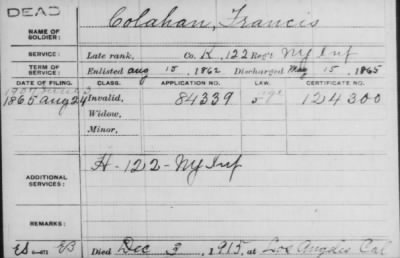 DEAD
NAME OF SOLDIER: Colahan, Francis
SERVICE: Late rank, Co. K, 122 Reg't NY Inf
TERM OF SERVICE: Enlisted Aug 15, 1862 Discharged May 15, 1865
DATE OF FILING. CLASS. APPLICATION NO. LAW. CERTIFICATE NO.
1865 Aug 24 Invalid, 84339 124300
Widow,
Minor,
ADDITIONAL SERVICES: H-122-NY Inf
REMARKS:
Died Dec 3, 1915, at Los Angeles Cal